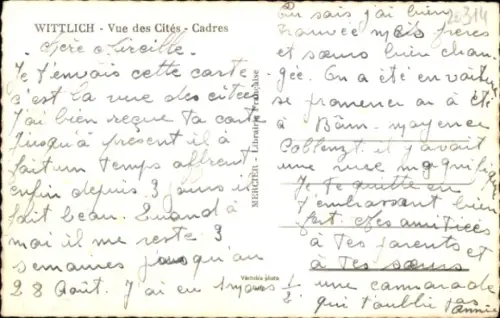 WITTLICH - Vue des Cités - Cadres
Chère Mireille.
Je t'envois cette carte
c'est la vue des citées
J'ai bien reçue ta carte
Jusqu'à présent il à
fait un temps affreut
enfin depuis 3 jours il
fait beau. Quand à
moi il me reste 3
semaines jusqu'au
28 Août. J'ai eu 1 mois 1/2
MERCIER - Librairie Française
Véritable photo
20314
Tu sais j'ai bien
trouvée mes frères
et sœurs bien chan-
gée. On a été en voiture
se promener on à été
à Bâm-mayence
Coblenzt il y avait
une vue magnifique
Je te quitte en
t'embrassant bien
fort. Mes amitiées
à tes parents et
à tes sœurs
une camarade
qui t'oublie pas
Annie